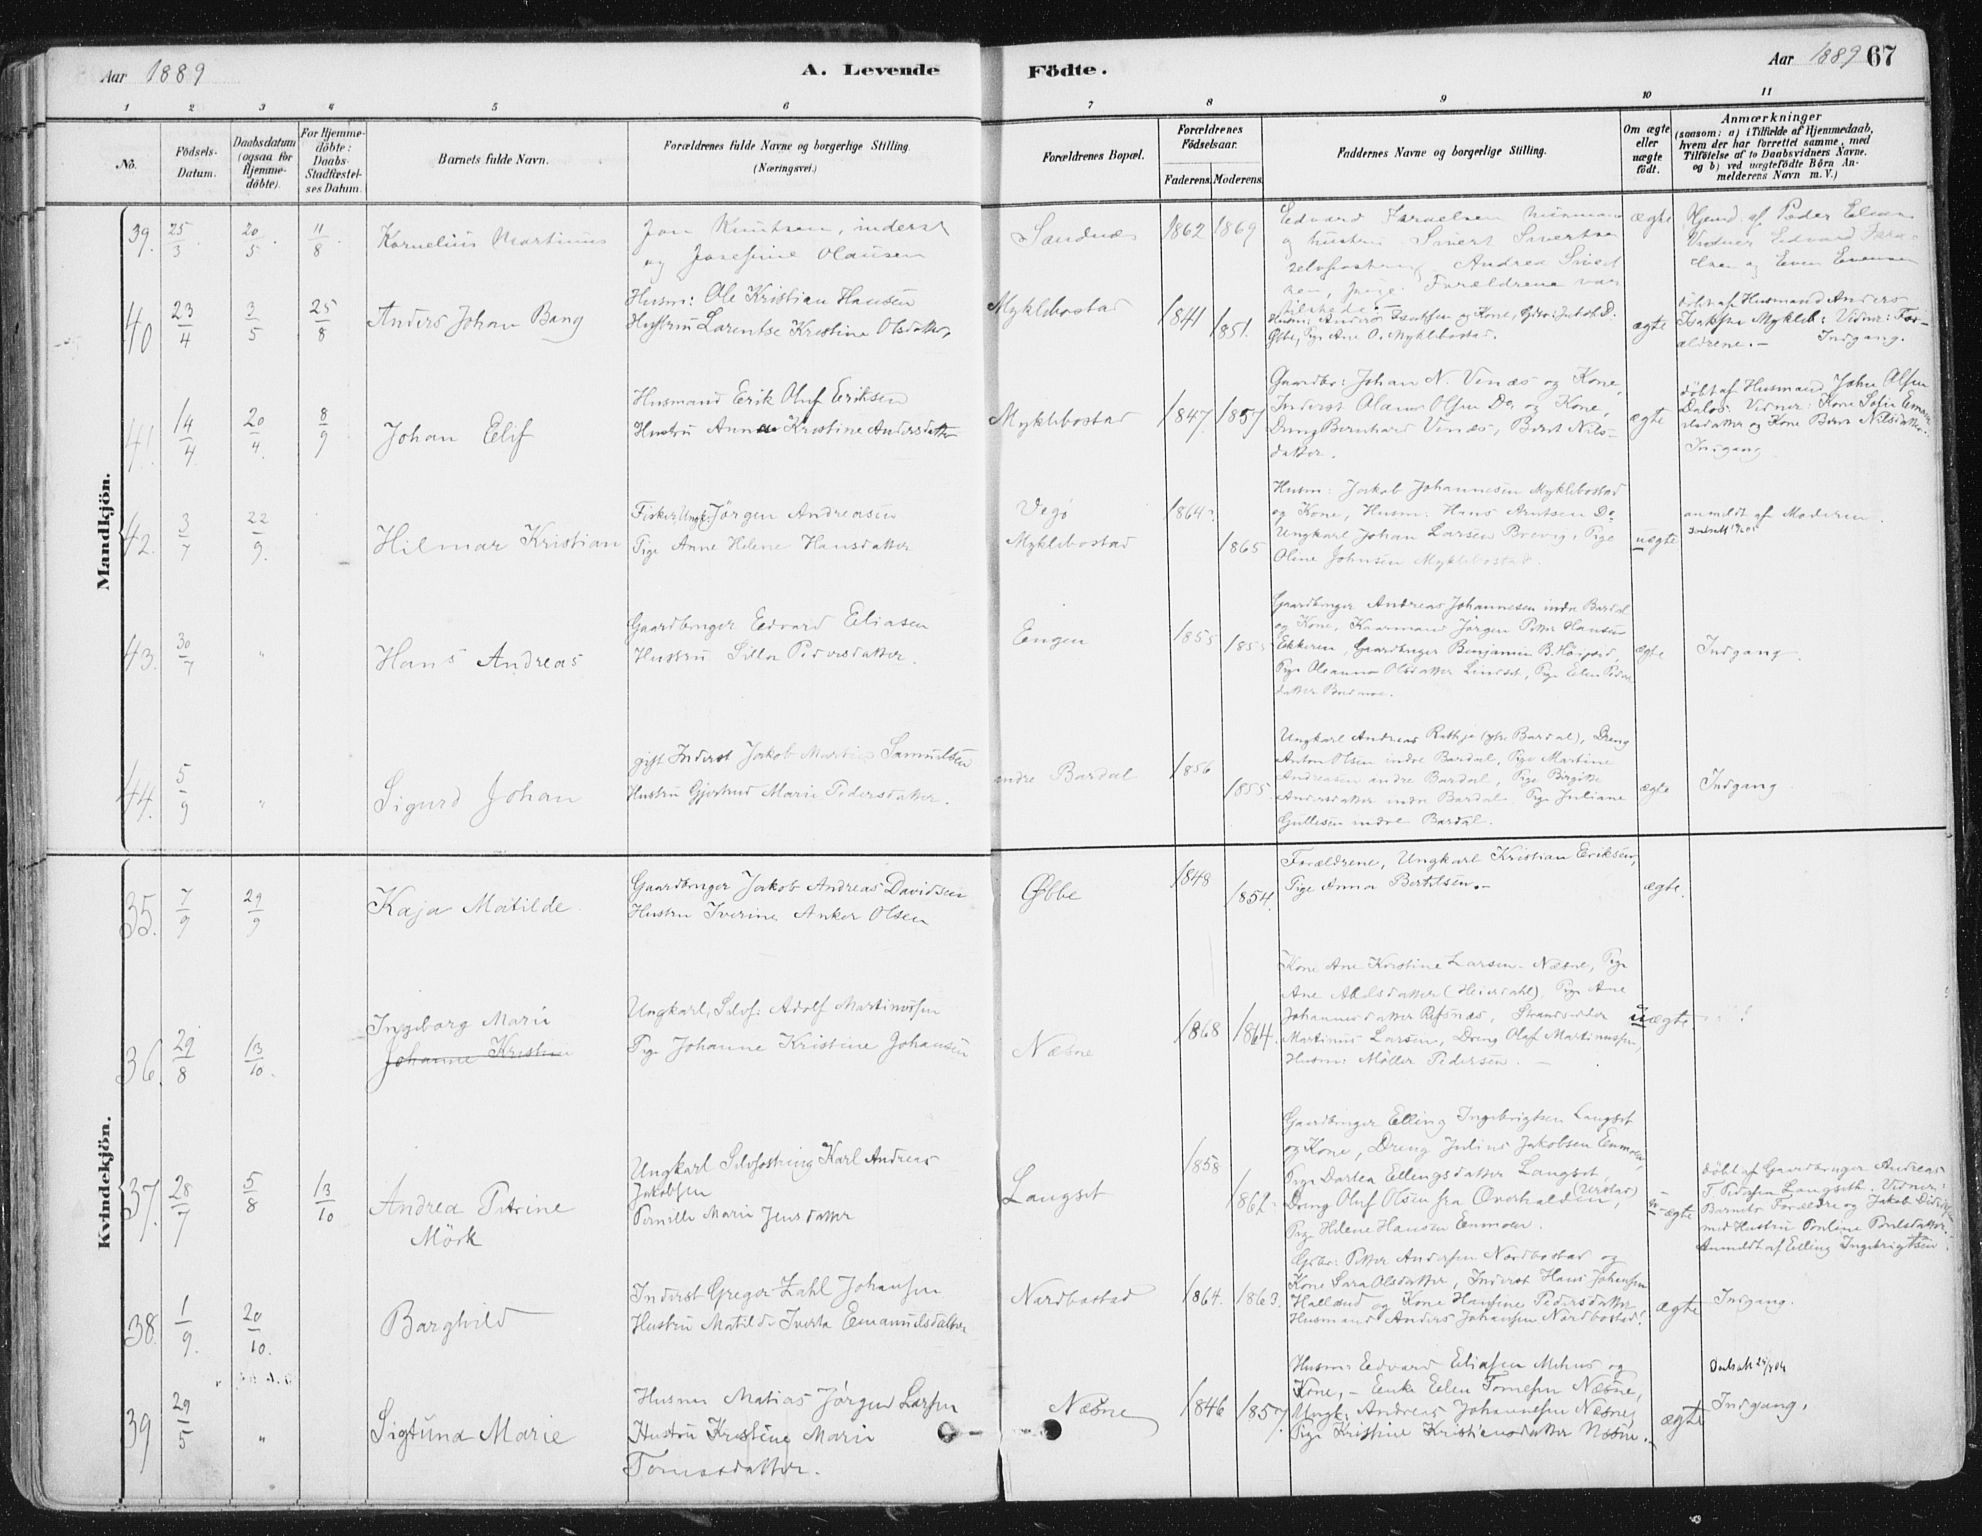 Aar 1889
A. Levende
Födte.
Aar 1889 67
1 2 3 4 5 6 7 8 9 10 11
No.
Födsels-
Datum.
Daabsdatum
(ogsaa for
Hjemme-
döbte).
For Hjemme-
döbte:
Daabs-
Stadfæstel-
ses Datum.
Barnets fulde Navn.
Forældrenes fulde Navne og borgerlige Stilling.
(Næringsvei.)
Forældrenes Bopæl.
Forældrenes
Födselsaar.
Faderens. Moderens.
Faddernes Navne og borgerlige Stilling.
Om ægte
eller
uægte
födt.
Anmærkninger
(saasom: a) i Tilfælde af Hjemmedaab,
hvem der har forrettet samme, med
Tilföielse af to Daabsvidners Navne.
og b) ved uægtefödte Börn An-
melderens Navn m. V.)
Mandkjön.
39. 25/3. 20/5. 11/8.
Kornelius Martinus
Jon Knutsen, inderst
og Josefine Olausen
Sandnæs
1862 1869
Edvard
og hustru Sivert Sivertsen
Andrea
Forældrene var
tilstede
ægte
Hjemd. af Peder
Vidner Edvard
og Even Evensen
40 23/4 3/5 25/8
Anders Johan Bang
Husm: Ole Kristian Hansen
Hustru Larentse Kristine Olsdatter,
Myklebostad
1841 1851.
Husm: Anders Isaksen og Kone,
Øbbe, Pige Ane O. Myklebostad.
ægte
döbt af Husmand Anders
Isaksen Mykleb: Vidner: For-
ældrene. – Indgang.
41. 14/4. 20/4. 8/9
Johan Elif
Husmand Erik Oluf Eriksen
Hustru Anna Kristine Andersdatter
Myklebostad
1847. 1857
Gaardbr: Johan N. Vinæs og Kone,
Inderst Olaus Olsen Do, og Kone,
Dreng Bernhard Vinæs, Berit Nils-
datter.
ægte
döbt af Husmand John Olsen
Dalos. Vidner: Kone Sofie
og Kone Berit Nilsdatter.
Indgang
42. 3/7 22/9.
Hilmar Kristian
Fisker, Ungk: Jörgen Andreasen
Pige Anne Helene Hansdatter
Vegø
Myklebostad
1864
1865
Husm: Jakob Johannesen Myklebostad
og Kone, Husm: Hans Arntsen Do
Ungkarl Johan Larsen Brevig, Pige
Oline Johnsen Myklebostad.
uægte
anmeldt af Moderen.
43. 30/7 "
Hans Andreas
Gaardbruger Edvard Eliasen
Hustru Silla Pedersdatter.
Engen
1855 1855
Gaardbruger Andreas Johannesen indre Bardal
og Kone, Kaarmand Jörgen Petter Hansen
Ekkeren, Gaardbruger Benjamin B.
Pige Oleanna Olsdatter Lindset, Pige Elen Peder
datter
ægte
Indgang.
44. 5/9 "
Sigurd Johan
gift Inderst Jakob Martin Samuelsen
Hustru Gjertrud Marie Pedersdatter.
indre Bardal
1856
1855.
Ungkarl Andreas (ytr. Bardal), Dreng
Anton Olsen indre Bardal, Pige Martine
Andreasen indre Bardal, Pige Birgitte
Andersdatter indre Bardal, Pige Juliane
Gullesen indre Bardal.
ægte
Indgang
Kvindekjön.
35. 7/9 29/9
Kaja Matilde
Gaardbruger Jakob Andreas Davidsen
Hustru Iverine Anker Olsen
Øbbe
1848
1854.
Forældrene, Ungkarl Kristian Eriksen,
Pige Anna Bertilsen.–
ægte.
36. 29/8 13/10.
Ingeborg Marie
Johanne Kristine
Ungkarl, Selvf. Adolf Martinussen
Pige Johanne Kristine Johansen
Næsne
1868 1864.
Kone Ane Kristine Larsen Næsne, Pige
Ane Abelsdatter Pige Ane
Johannesdatter Refsnæs, Strandsidder
Martinus Larsen, Dreng Olaf Martinussen,
Husm: Möller Pedersen. –
uægte
37. 28/7 5/8 13/10
Andrea Petrine
Mörk
Ungkarl Karl Andreas
Jakobsen
Pernille Marie Jensdatter
Langset
1858
1862.
Gaardbruger Elling Ingebrigtsen Langset
og Kone, Dreng Julius Jakobsen Enmoen,
Pige Dortea Ellingsdatter Langset,
Dreng Oluf Olsen fra Overhalden,
Pige Helene Hansen Enmoen.
u-ægte
döbt af Gaardbruger Andreas
T. Pedersen Langseth. Vidner:
Barnets Forældre og Jakob
med Hustru Pauline Poulsdatter.
Anmeldt af Elling Ingebrigtsen.
38. 1/9. 20/10.
Borghild
Inderst Gregor Zahl Johansen
Hustru Matilde Iverta Emanuelsdatter
Nordbostad
1864. 1863.
Gbr: Petter Andersen Nordbostad og
Kone Sara Olsdatter, Inderst Hans Johansen
Halland og Kone Hansine Pedersdatter
Husmand Anders Johansen Nordbostad.
ægte
Indgang.
39 29/5 "
Sigtuna Marie
Husm Matias Jörgen Larsen
Hustru Kristine Marie
Tomasdatter.
Næsne
1846 1857.
Husm: Edvard Eliasen Mehus og
Kone, – Enke Elen Næsne,
Ungk: Andreas Johannesen Næsne,
Pige Kristine Kristiansdatter Næsne.
ægte
Indgang.